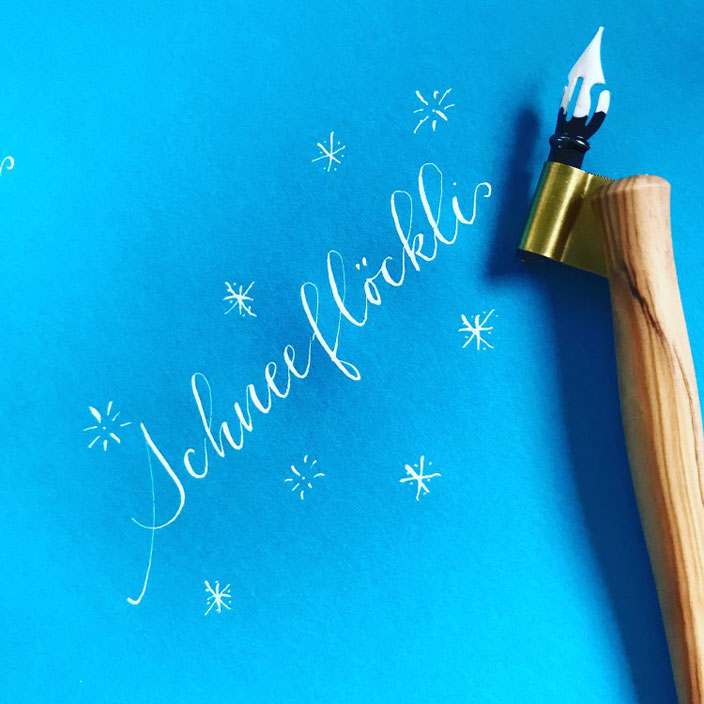 Schneeflöckli